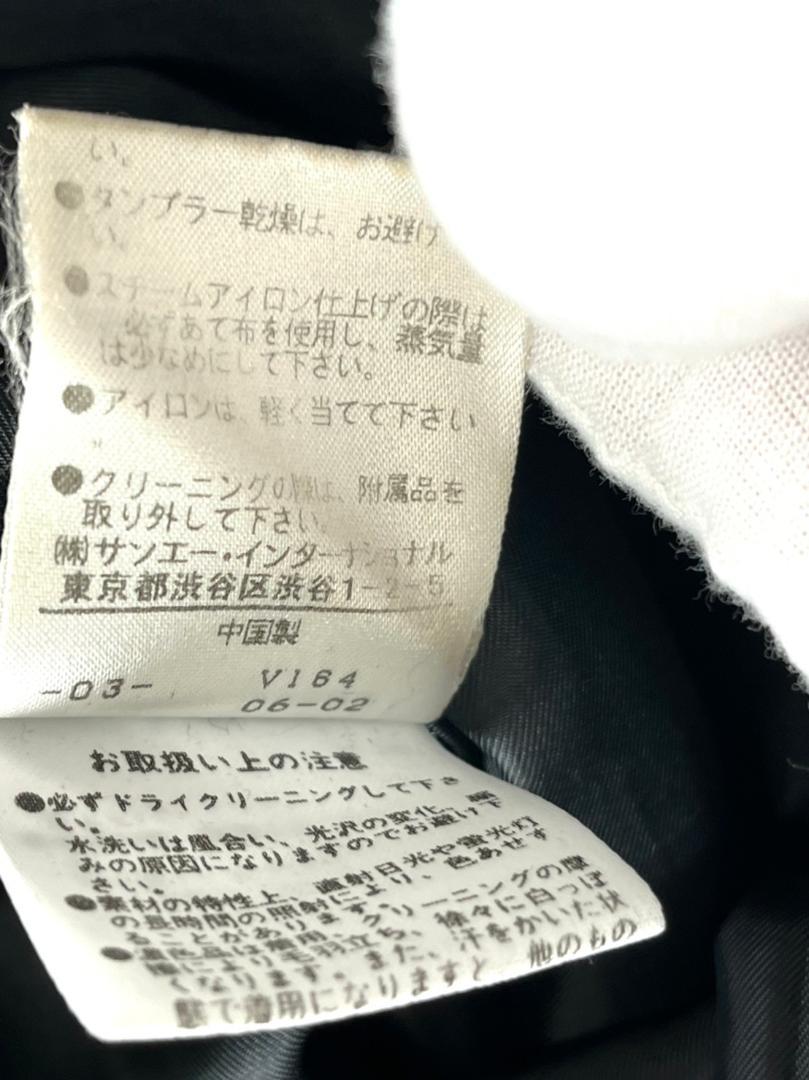 い。
●タンブラー乾燥は、お避け
い。
●スチームアイロン仕上げの際は
必ずあて布を使用し、蒸気量
は少なめにして下さい。
●アイロンは、軽く当てて下さい
。
●クリーニングの際は、附属品を
取り外して下さい。
(株)サンエー・インターナショナル
東京都渋谷区渋谷1-2-5
中国製
-03- V164
06-02
お取扱い上の注意
●必ずドライクリーニングして下さ
い。
水洗いは風合い、光沢の変化、縮
みの原因になりますのでお避け下
さい。
●素材の特性上、直射日光や蛍光灯
の長時間の照射により、色あせす
ることがあります。
●濃色品は着用、クリーニングの摩
擦により毛羽立ち、徐々に白っぽ
くなります。また、汗をかいた状
態で着用になりますと、他のもの